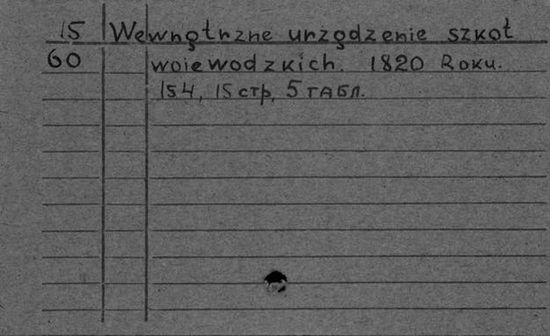 15 Wewnątrzne urządzenie szkoł
60 woiewodzkich. 1820 Roku.
154, 15 стр, 5 табл.